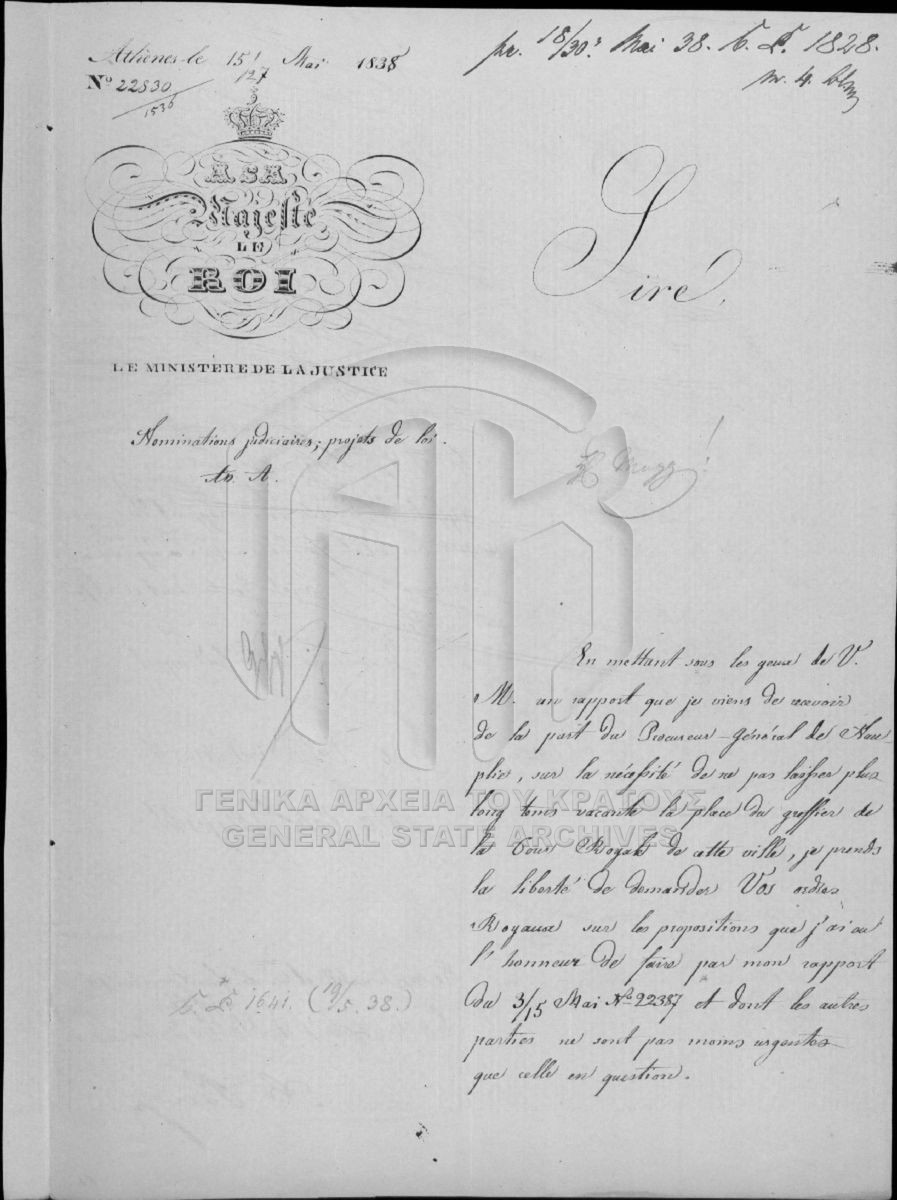 Athènes le 15/27 Mai 1838
pr. 18/30 Mai 38. 1828.
No 22830
1536
A SA
Majesté
LE
ROI
Sire,
LE MINISTÈRE DE LA JUSTICE
Nominations judiciaires; projets de loi.
A.
En mettant sous les yeux de V.
M. un rapport que je viens de recevoir
de la part du Procureur-Général de Nau-
plie, sur la nécessité de ne pas laisser plus
long tems vacante la place du greffier de
la Cour Royale de cette ville, je prends
la liberté de demander Vos ordres
Royaux sur les propositions que j'ai eu
l'honneur de faire par mon rapport
du 3/15 Mai No 22387 et dont les autres
parties ne sont pas moins urgentes
que celle en question.
1641. (19/5. 38.)
ΓΕΝΙΚΑ ΑΡΧΕΙΑ ΤΟΥ ΚΡΑΤΟΥΣ
GENERAL STATE ARCHIVES